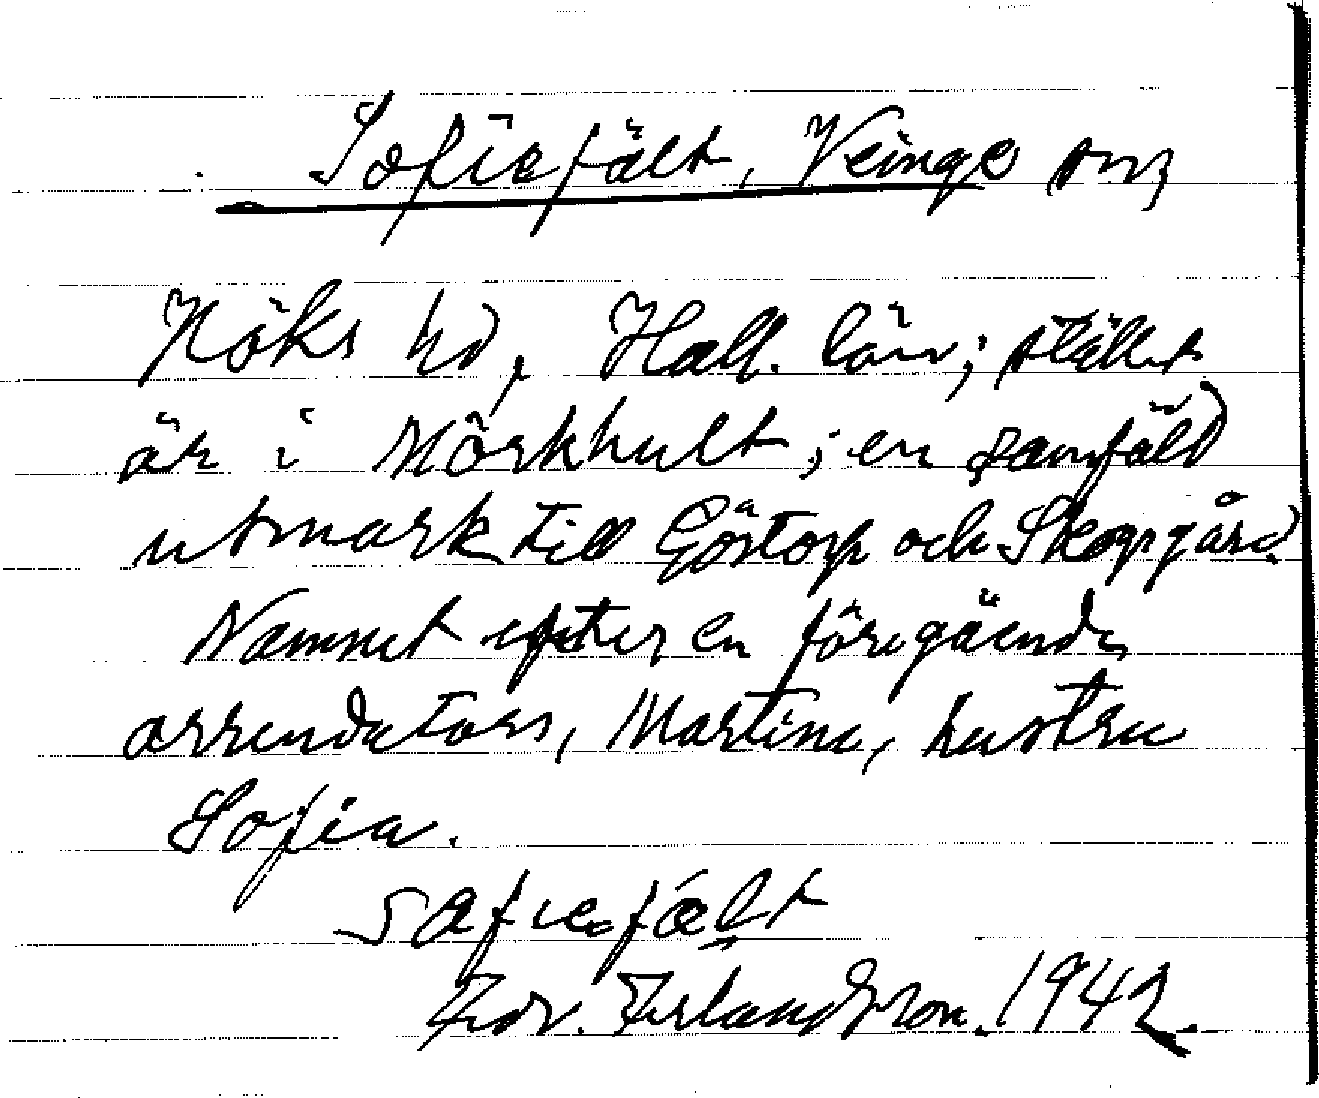 Sofiefält, Veinge sn,
Höks hd, Hall. län; stället
är i Mörkhult; en samfäld
utmark till Göstorp och Skogsgård
Namnet efter en föregående
arrendators, Martins, hustru
Sofia.
safiefælt
Edv. Erlandsson. 1942.